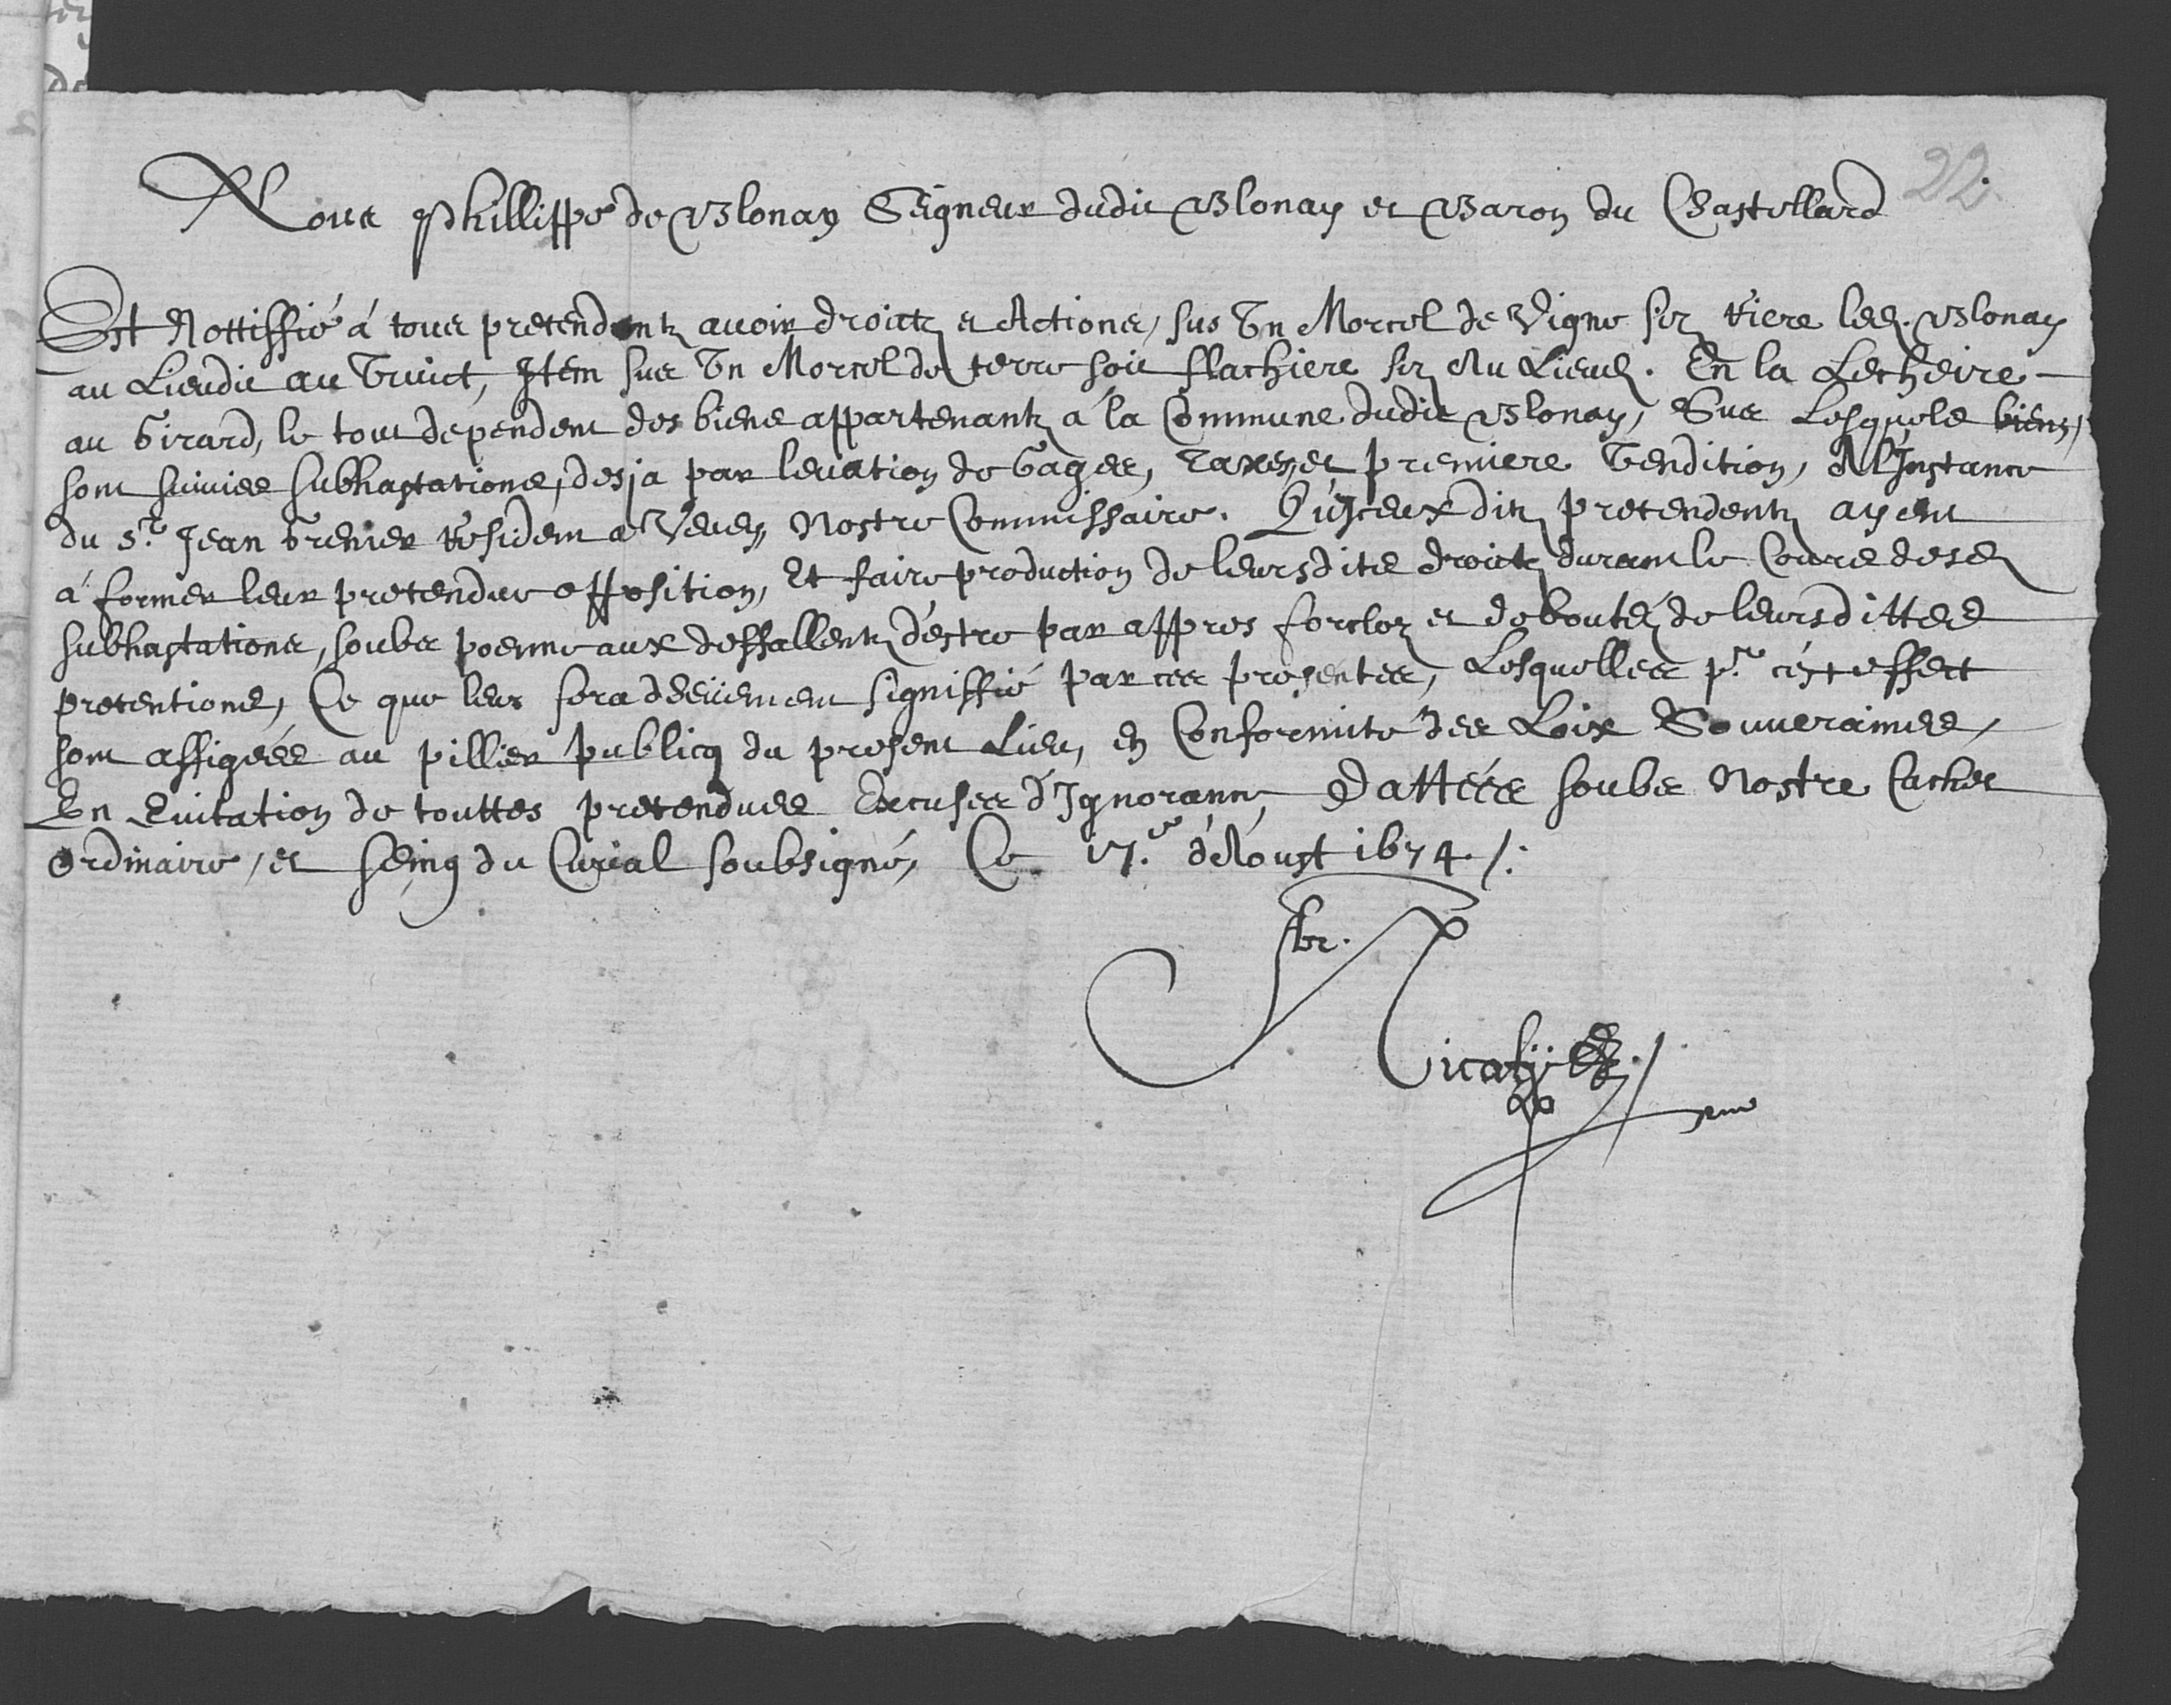 22.
Nous Phillippe de Blonay Seigneur dudit Blonay et Baron du Chastellard
Est Nottiffié à tous pretendantz avoir droictz et Actions, sus Un Morcel de Vigne siz riere led. Blonay
au Lieudit au Truict, Item sus Un Morcel de terre soit flachiere siz Au Lieud. En la Lecheire
au Girard, le tout dependent des biens appartenantz à la Commune dudit Blonay, Sus Lesquels biens,
sont suivies subhastations, desja par levation de Gages, Taxes, et premiere Vendition, A l'Instance
du Sr. Jean Grenier Residem a Vevey, Nostre Commissaire. Qu'Iceux ditz pretendentz ayent
à former leur pretendue opposition, Et faire production de leursdits droictz durant le Cours desd
subhastations, soubs poenne aux deffallentz d'estre par appres forcloz et deboutéz de leursdittes
pretentions, Ce que leur sera deüement signiffié par ces presentes, Lesquelles pr. cést effect
sont affigées au pillier publicq du present Lieu, en Conformité des Loix Souveraines,
En Evitation de touttes pretendues Excuses d'Ignorance, Dattées soubs Nostre Cachet
Ordinaire, et seing du Curial soubsigné, Ce 17.e d'Aoust 1674 /.